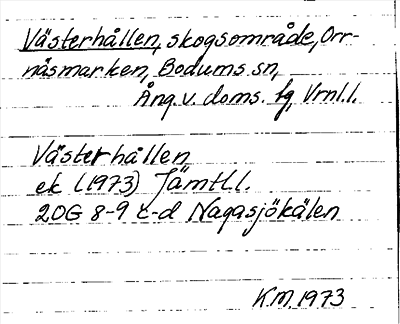 Västerhållen, skogsområde, Orr-
nåsmarken, Bodums sn,
Ång. v. doms. fg, Vrnl.l.
Västerhållen
ek (1973) Jämtl.l.
20G 8-9 c-d Nagasjökälen
K.M. 1973